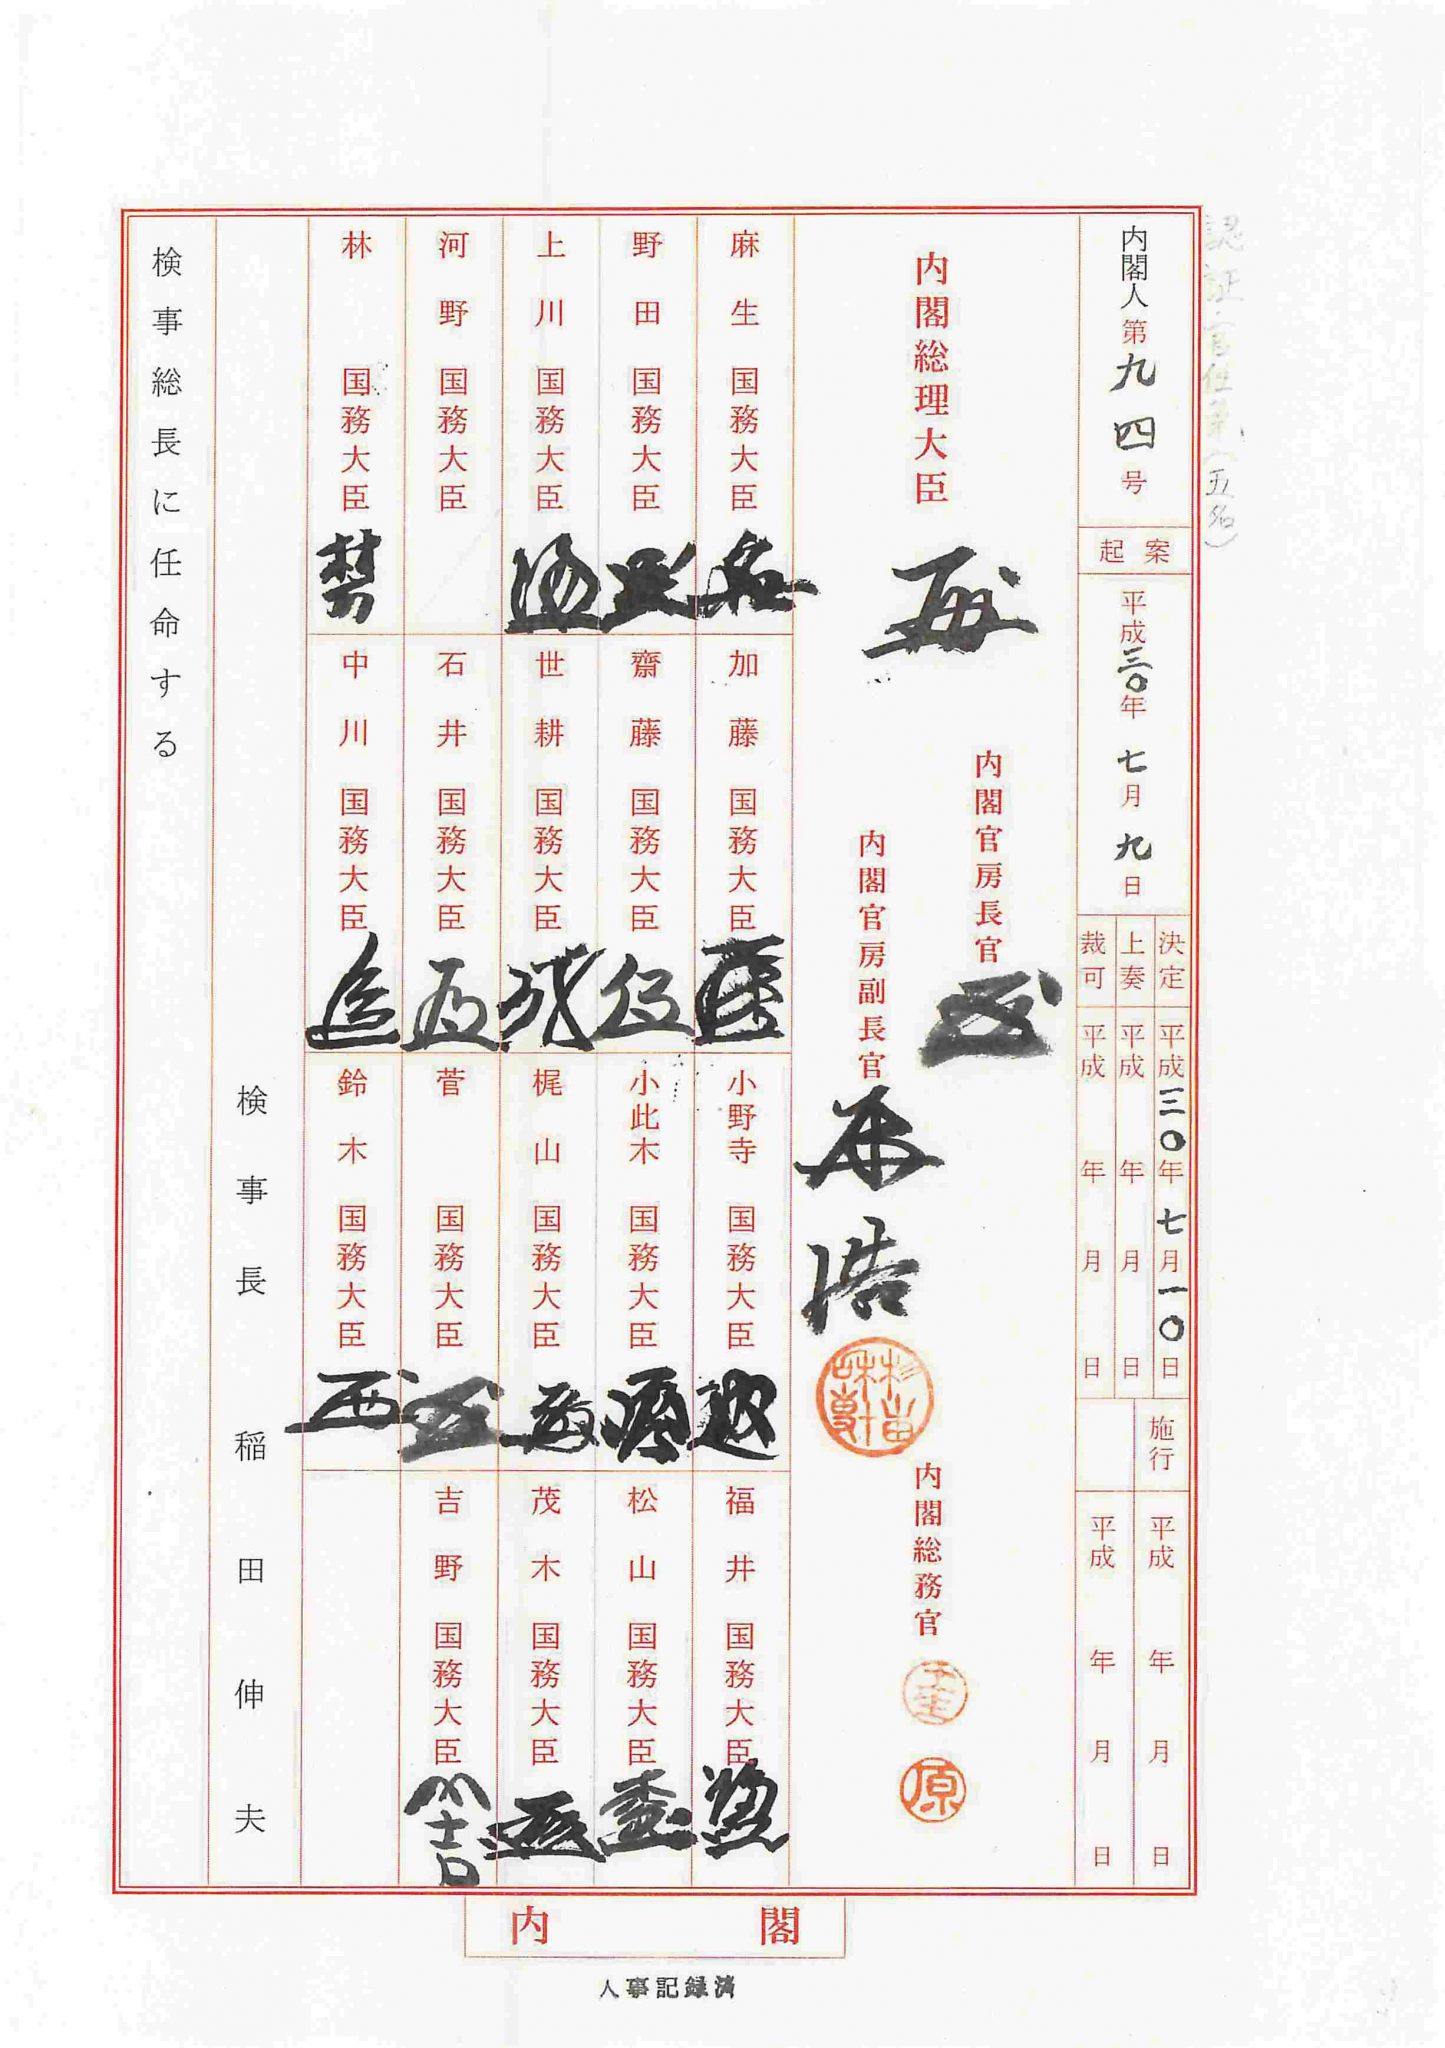 認証官任命(五名)
内閣人第九四号
起案
平成三〇年七月九日
決定 平成三〇年七月一〇日
上奏 平成 年 月 日
裁可 平成 年 月 日
施行 平成 年 月 日
平成 年 月 日
内閣総理大臣
内閣官房長官
内閣官房副長官
内閣総務官
原
麻生国務大臣
野田国務大臣
上川国務大臣
河野国務大臣
林国務大臣
加藤国務大臣
齋藤国務大臣
世耕国務大臣
石井国務大臣
中川国務大臣
小野寺国務大臣
小此木国務大臣
梶山国務大臣
菅国務大臣
鈴木国務大臣
福井国務大臣
松山国務大臣
茂木国務大臣
吉野国務大臣
検事長 稲田伸夫
検事総長に任命する
内閣
人事記録済